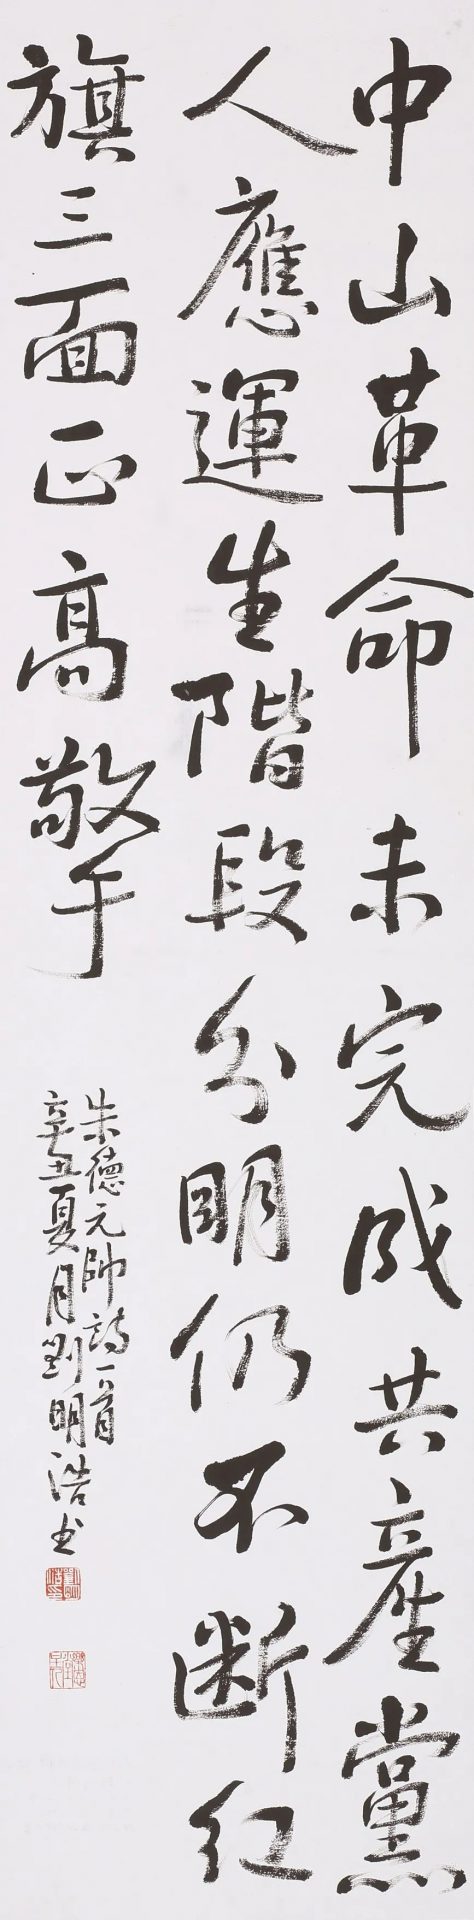 中山革命未完成共產黨
人應運生階段分明仍不斷紅
旗三面正高擎
朱德元帥詩一首
辛丑夏月劉明浩書